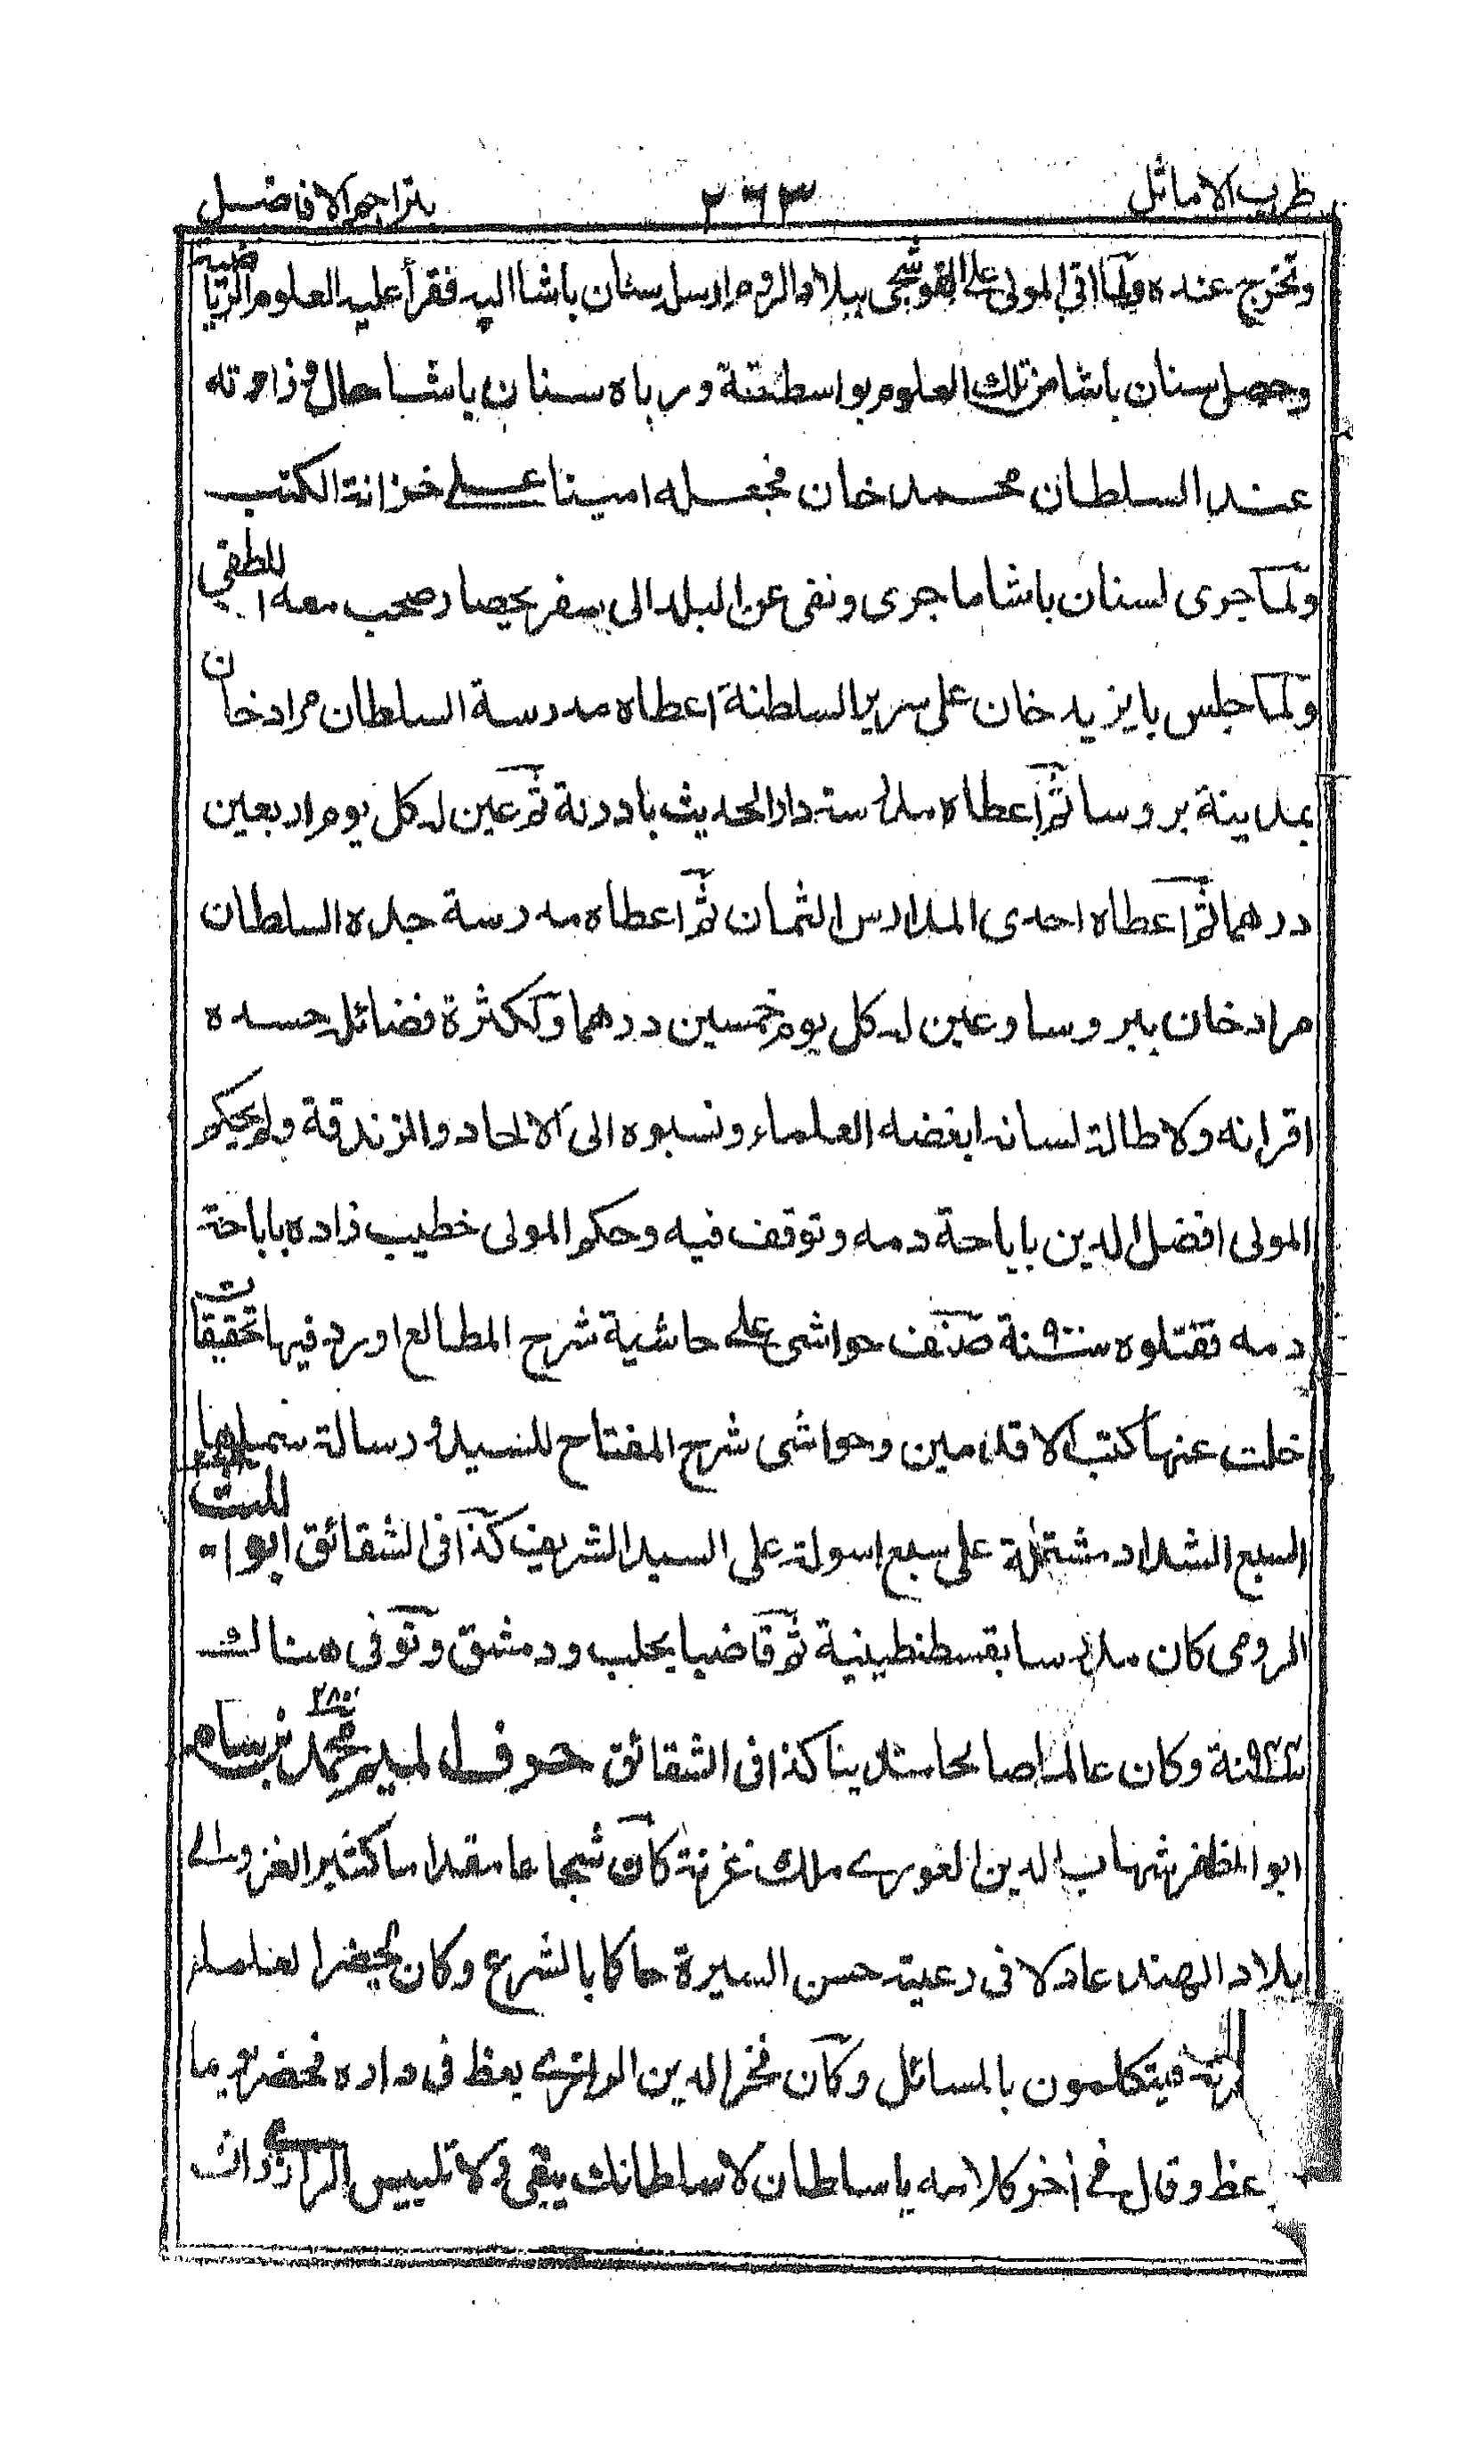 طرب الاماثل ٢٦٣ بتراجم الافاضل
وتخرج عنده ولما اتى المولى على القوشجى ببلاد الروم ارسل سنان باشا اليه فقرأ عليه العلوم الرياضية
وحصل سنان باشا من تلك العلوم بواسطته ورباه سنان باشا حال وزارته
عند السلطان محمد خان فجعله امينا على خزانة الكتب
ولما جرى لسنان باشا ما جرى ونفى عن البلد الى سفر يحصار صحب معه اللطفي
ولما جلس بايزيد خان على سرير السلطنة اعطاه مدرسة السلطان مراد خان
بمدينة بروسا ثم اعطاه مدرسة دار الحديث بادرنة ثم عين له كل يوم اربعين
درهما ثم اعطاه احدى المدارس الثمان ثم اعطاه مدرسة جده السلطان
مراد خان ببروسا وعين له كل يوم خمسين درهما ولكثرة فضائل حسده
اقرانه ولاطالة لسانه ابغضه العلماء ونسبوه الى الالحاد والزندقة ولم يحكم
المولى افضل الدين باباحة دمه وتوقف فيه وحكم المولى خطيب زاده باباحة
دمه فقتلوه سنة ٩٠٠ صنف حواشى على حاشية شرح المطالع اورد فيها تحقيقات
خلت عنها كتب الاقدمين وحواشى شرح المفتاح للسيد ورسالة سماها
السبع الشداد مشتملة على سبع اسولة على السيد الشريف كذا فى الشقائق ابو الليث
الرومى كان مدرسا بقسطنطينية ثم قاضيا بحلب ودمشق وتوفى هنالك
سنة ٩٤٤ وكان عالما صالحا متدينا كذا فى الشقائق حرف الميم محمد بن سام
ابو المظفر شهاب الدين الغورى ملك غزنة كان شجاعا مقداما كثير الغزو الى
بلاد الهند عادلا فى رعيته حسن السيرة حاكما بالشرع وكان يحضر العلماء
فيتكلمون بالمسائل وكان فخر الدين الرازى يعظ فى داره فحضر يوما
عظ وقال فى آخر كلامه يا سلطان لا سلطانك يبقى ولا تلبيس الرازى وان